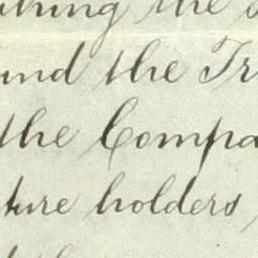 thing the
and the Tr
the Compa
ture holders